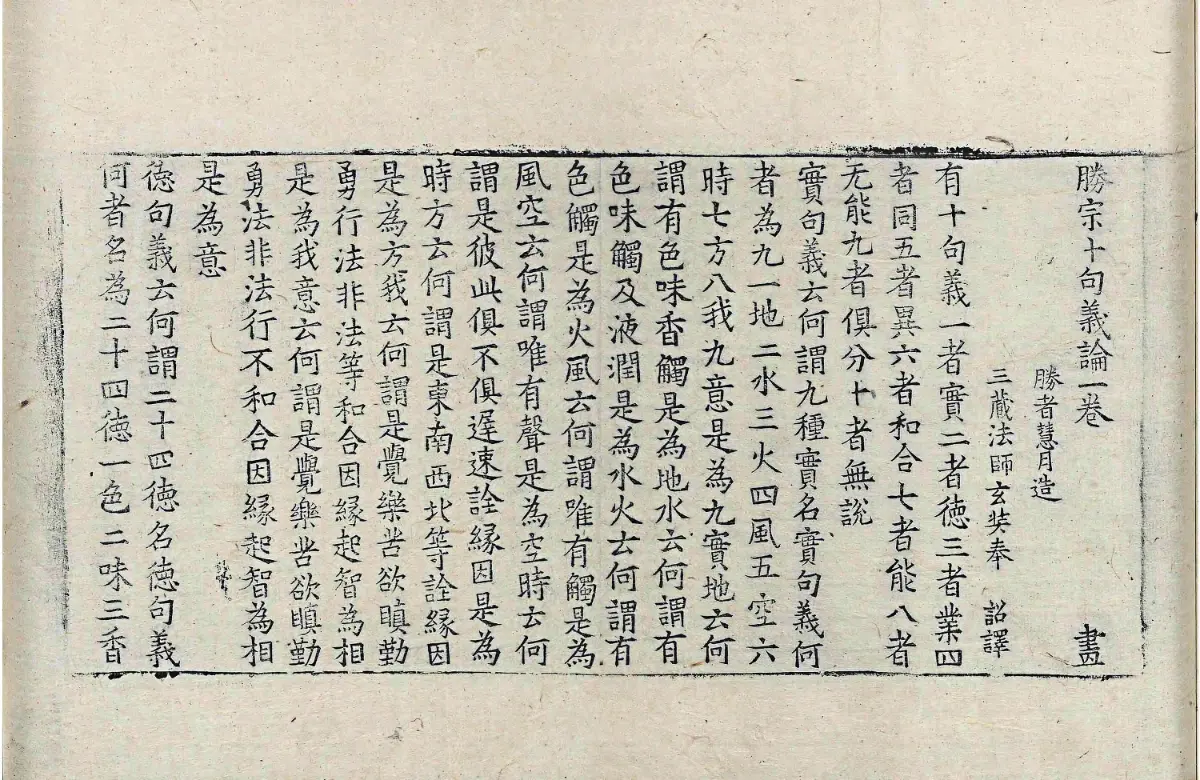 勝宗十句義論一卷 畫
勝者慧月造
三藏法師玄奘奉 詔譯
有十句義一者實二者德三者業四
者同五者異六者和合七者能八者
无能九者俱分十者無說
實句義云何謂九種實名實句義何
者為九一地二水三火四風五空六
時七方八我九意是為九實地云何
謂有色味香觸是為地水云何謂有
色味觸及液潤是為水火云何謂有
色觸是為火風云何謂唯有觸是為
風空云何謂唯有聲是為空時云何
謂是彼此俱不俱遲速詮緣因是為
時方云何謂是東南西北等詮緣因
是為方我云何謂是覺樂苦欲瞋勤
勇行法非法等和合因緣起智為相
是為我意云何謂是覺樂苦欲瞋勤
勇法非法行不和合因緣起智為相
是為意
德句義云何謂二十四德名德句義
何者名為二十四德一色二味三香